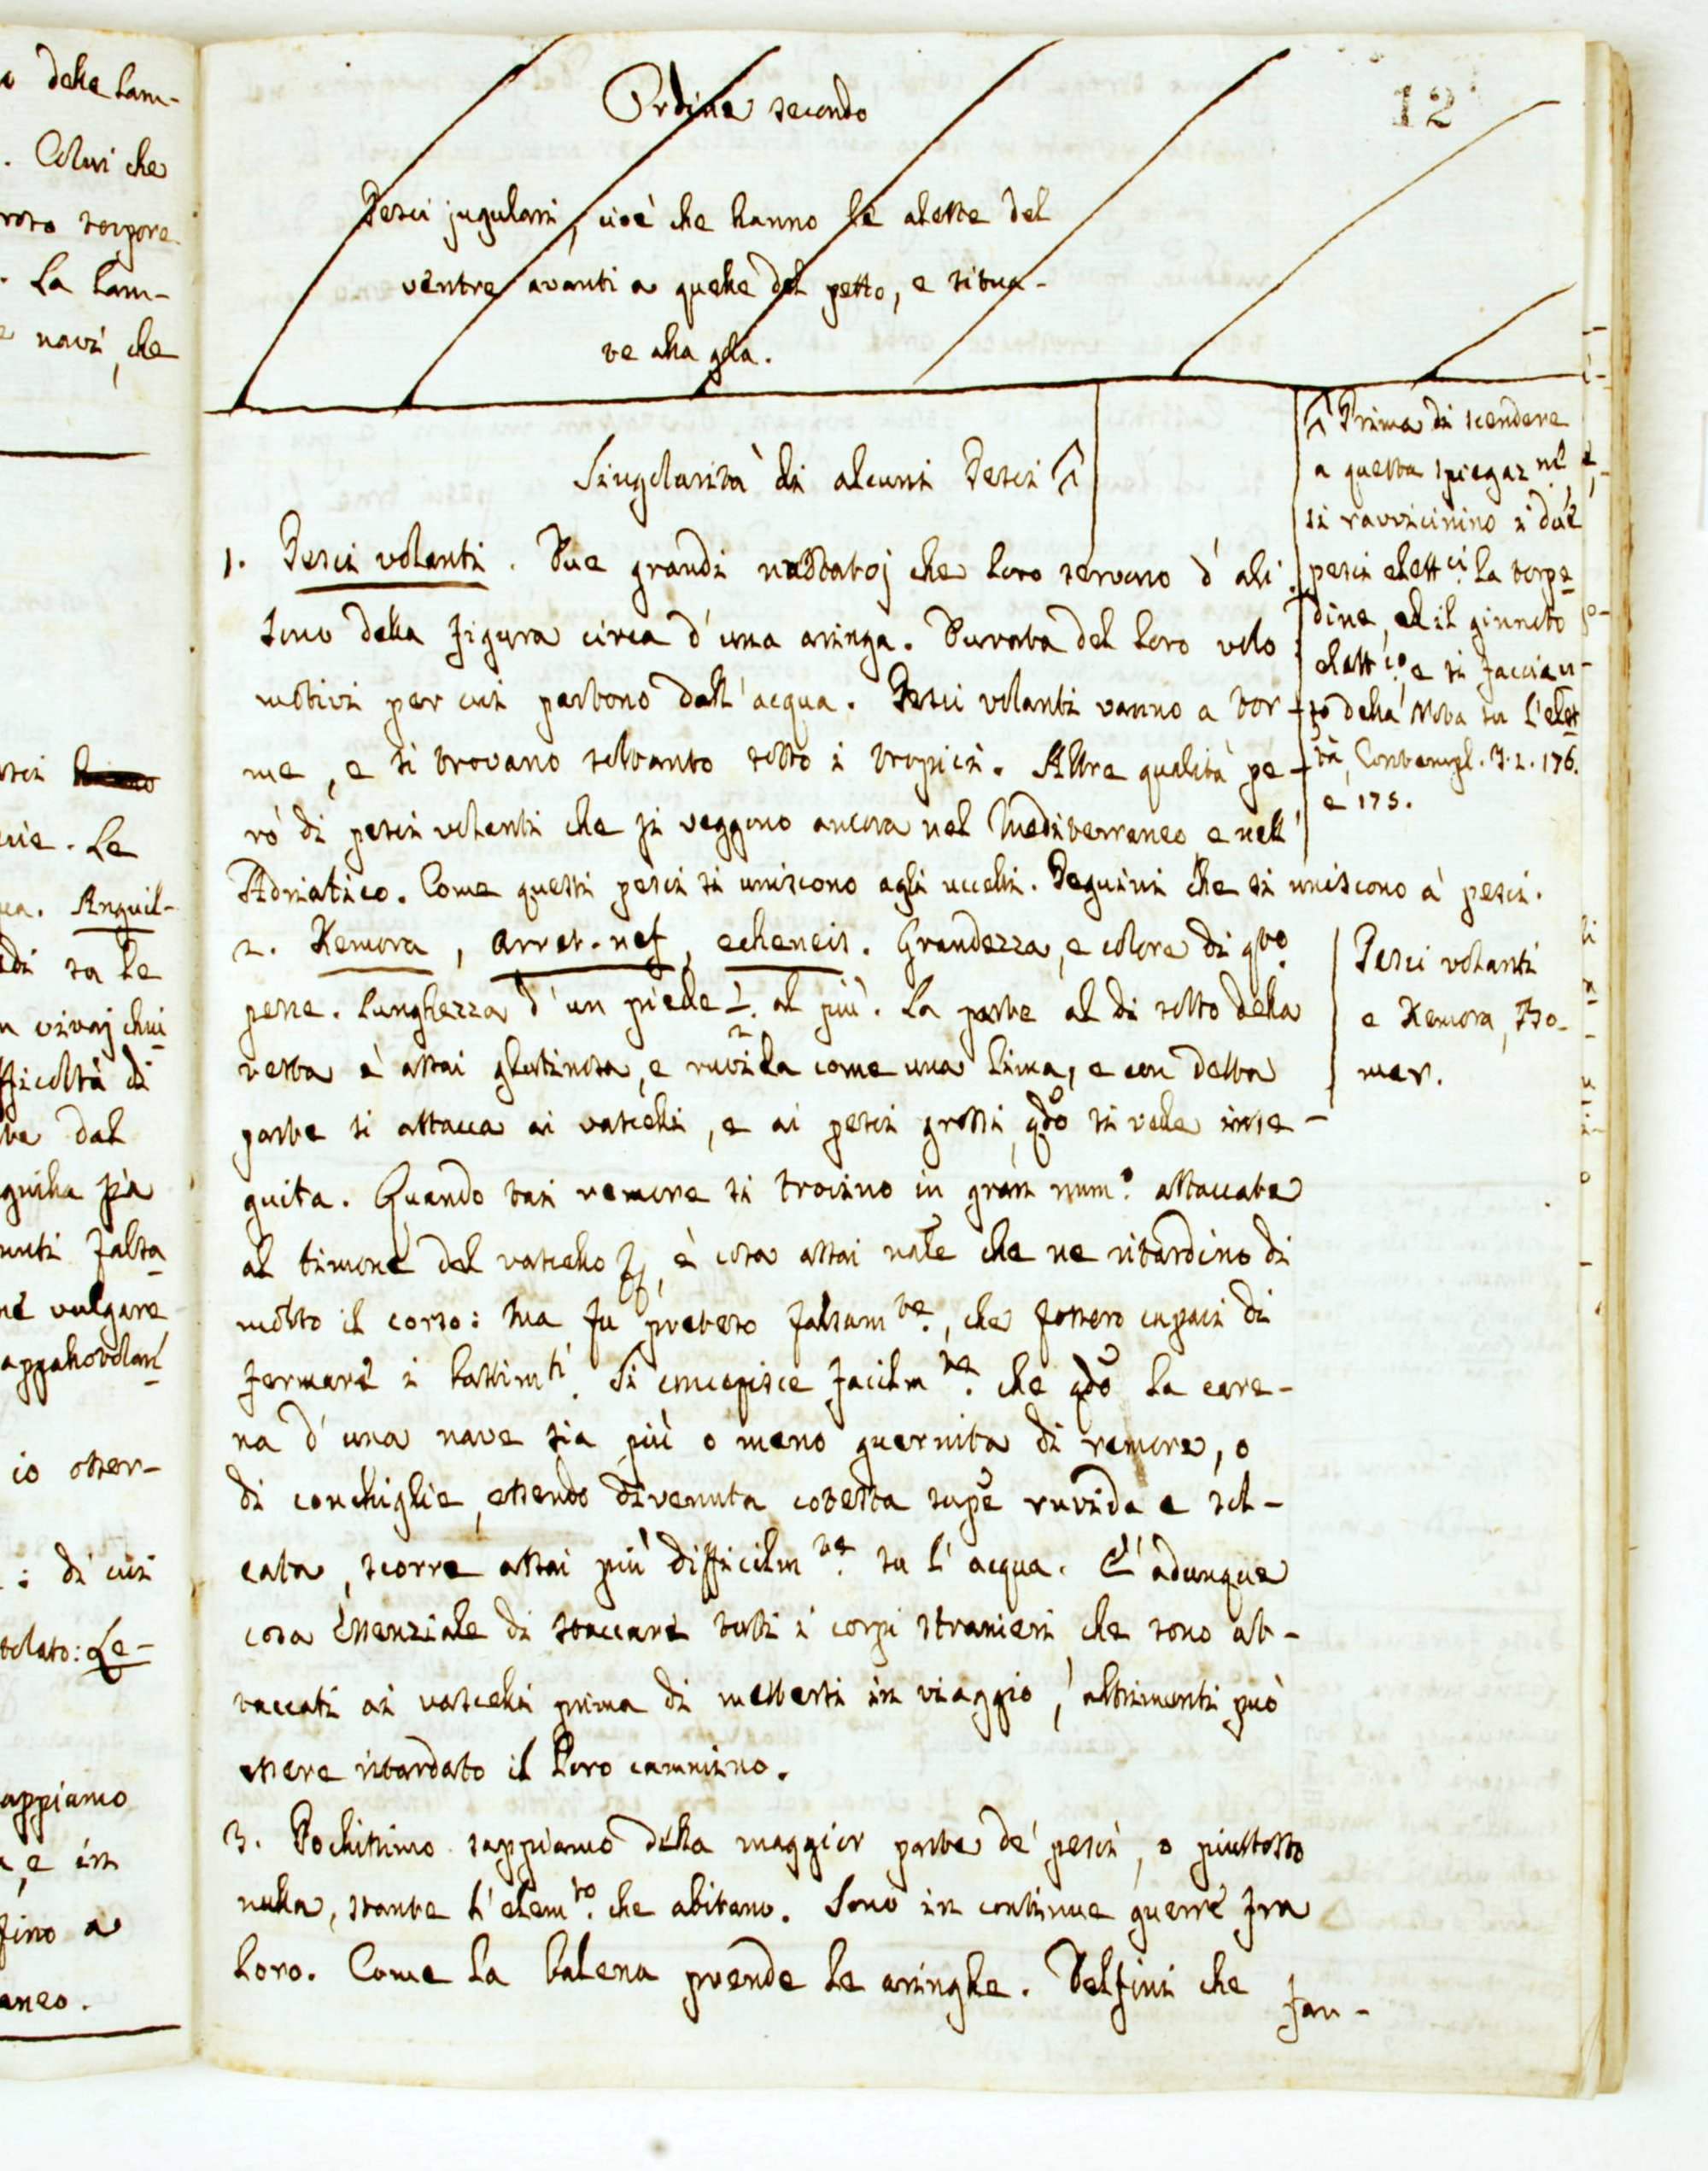 Ordine secondo
12
Pesci jugulari, cioè che hanno le alette del
ventre avanti a quelle del petto, e situa-
te alla gola.
Singolarità di alcuni Pesci
1. Pesci volanti. Due grandi nuotatoj che loro servono d'ali.
Sono della figura circa d'una aringa. Durata del loro volo
motivi per cui partono dall'acqua. Pesci volanti vanno a tor-
me, e si trovano soltanto sotto i tropici. Altre qualità pe-
rò di pesci volanti che si veggono ancora nel Mediterraneo e nell'
Adriatico. Come questi pesci si uniscono agli uccelli. Penguini che si uniscono a' pesci.
2. Remora, arret-nef, echeneis. Grandezza, e colore di qto.
pesce. Lunghezza d'un piede 1/2. al più. La parte al di sotto della
testa è assai glutinosa, e ruvida come una lima, e con detta
parte si attacca ai vascelli, e ai pesci grossi, qdo si vede inse-
guita. Quando tai remore si trovino in gran num.o attaccate
al timone del vascello, è cosa assai nale che ne ritardino di
molto il corso: ma fu preteso falsamte., che fossero capaci di
fermare i bastimti. Si concepisce facilmte. che qdo la care-
na d'una nave sia più o meno guernita di remore, o
di conchiglie, essendo divenuta cotesta supe ruvida e sol-
cata, scorre assai più difficilmte. su l'acqua. E' adunque
cosa essenziale di staccare tutti i corpi stranieri che sono at-
taccati ai vascelli prima di mettersi in viaggio, altrimenti può
essere ritardato il loro cammino.
3. Pochissimo sappiamo della maggior parte de' pesci, o piuttosto
nulla, stante l'elemto. che abitano. Sono in continue guerre fra
loro. Come la balena prende le aringhe. Delfini che
fan-
Prima di scendere
a questa spiegaz.ne,
si ravvicinino i due
pesci elettci. la torpe
dine, ed il ginnoto
elettco. e si faccia u-
so della Nota su l'elet
tà, Contempl. T. 2. 176.
e 175.
Pesci volanti
e Remora, Bo-
mer.
o delle Lam-
. Colui che
torpore.
. La Lam-
navi, che
. Le
Anguil-
vivaj chiu
fficoltà di
te dal
falsa
né vulgare
io osser-
: di cui
: Le-
appiamo
, e in
fino a
aneo.